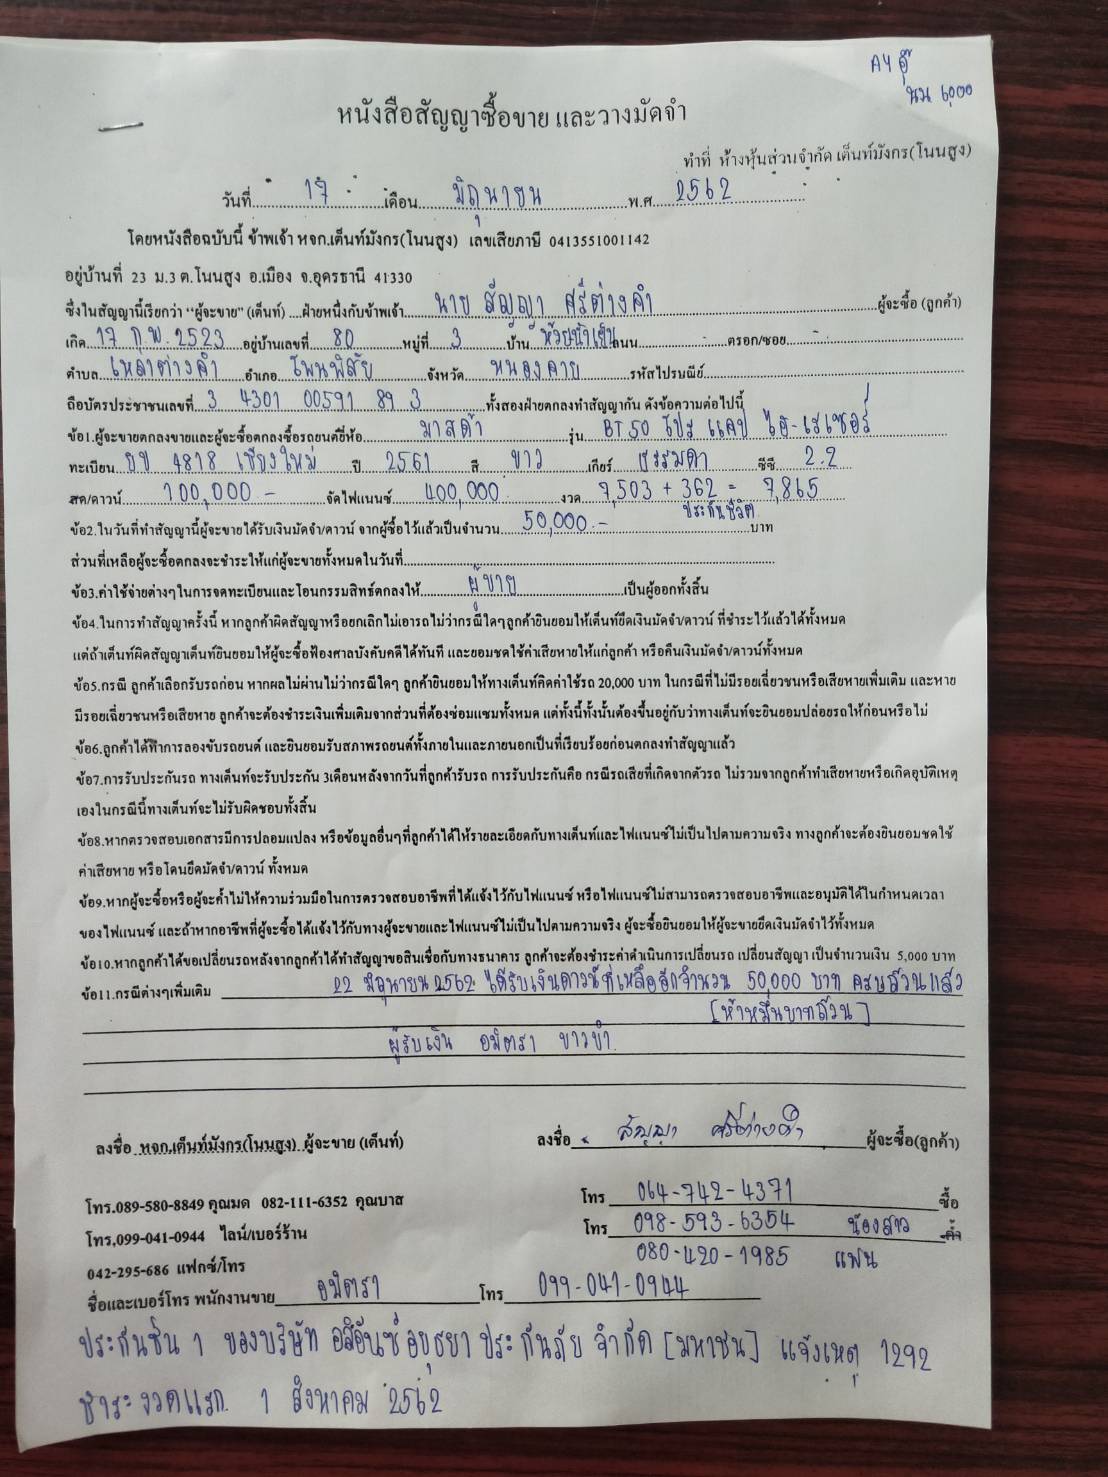 A4 อุ๊
นน 6,000
หนังสือสัญญาซื้อขาย และวางมัดจำ
ทำที่ ห้างหุ้นส่วนจำกัด เต็นท์มังกร(โนนสูง)
วันที่ 17 เดือน มิถุนายน พ.ศ 2562
โดยหนังสือฉบับนี้ ข้าพเจ้า หจก.เต็นท์มังกร(โนนสูง) เลขเสียภาษี 0413551001142
อยู่บ้านที่ 23 ม.3 ต.โนนสูง อ.เมือง จ.อุดรธานี 41330
ซึ่งในสัญญานี้เรียกว่า "ผู้จะขาย" (เต็นท์) ....ฝ่ายหนึ่งกับข้าพเจ้า นาย สัญญา ศรีต่างคำ ผู้จะซื้อ (ลูกค้า)
เกิด 17 ก.พ. 2523 อยู่บ้านเลขที่ 80 หมู่ที่ 3 บ้าน ห้วยน้ำเย็น ถนน - ตรอก/ซอย -
ตำบล เหล่าต่างคำ อำเภอ โพนพิสัย จังหวัด หนองคาย รหัสไปรษณีย์
ถือบัตรประชาชนเลขที่ 3 4301 00591 89 3 ทั้งสองฝ่ายตกลงทำสัญญากัน ดังข้อความต่อไปนี้
ข้อ1.ผู้จะขายตกลงขายและผู้จะซื้อตกลงซื้อรถยนต์ยี่ห้อ มาสด้า รุ่น BT50 โปร แคป ไฮ-เรเซอร์
ทะเบียน ยข 4818 เชียงใหม่ ปี 2561 สี ขาว เกียร์ ธรรมดา ซีซี 2.2
สด/ดาวน์ 100,000 - จัดไฟแนนซ์ 400,000 งวด 7,503 + 362 = 7,865
ประกันชีวิต
ข้อ2.ในวันที่ทำสัญญานี้ผู้จะขายได้รับเงินมัดจำ/ดาวน์ จากผู้ซื้อไว้แล้วเป็นจำนวน 50,000.- บาท
ส่วนที่เหลือผู้จะซื้อตกลงจะชำระให้แก่ผู้จะขายทั้งหมดในวันที่
ข้อ3.ค่าใช้จ่ายต่างๆในการจดทะเบียนและโอนกรรมสิทธ์ตกลงให้ ผู้ขาย เป็นผู้ออกทั้งสิ้น
ข้อ4.ในการทำสัญญาครั้งนี้ หากลูกค้าผิดสัญญาหรือยกเลิกไม่เอารถไม่ว่ากรณีใดๆลูกค้ายินยอมให้เต็นท์ยึดเงินมัดจำ/ดาวน์ ที่ชำระไว้แล้วได้ทั้งหมด
แต่ถ้าเต็นท์ผิดสัญญาเต็นท์ยินยอมให้ผู้จะซื้อฟ้องศาลบังคับคดีได้ทันที และยอมชดใช้ค่าเสียหายให้แก่ลูกค้า หรือคืนเงินมัดจำ/ดาวน์ทั้งหมด
ข้อ5.กรณี ลูกค้าเลือกรับรถก่อน หากผลไม่ผ่านไม่ว่ากรณีใดๆ ลูกค้ายินยอมให้ทางเต็นท์คิดค่าใช้รถ 20,000 บาท ในกรณีที่ไม่มีรอยเฉี่ยวชนหรือเสียหายเพิ่มเติม และหาย
มีรอยเฉี่ยวชนหรือเสียหาย ลูกค้าจะต้องชำระเงินเพิ่มเติมจากส่วนที่ต้องซ่อมแซมทั้งหมด แต่ทั้งนี้ทั้งนั้นต้องขึ้นอยู่กับว่าทางเต็นท์จะยินยอมปล่อยรถให้ก่อนหรือไม่
ข้อ6.ลูกค้าได้ทำการลองขับรถยนต์ และยินยอมรับสภาพรถยนต์ทั้งภายในและภายนอกเป็นที่เรียบร้อยก่อนตกลงทำสัญญาแล้ว
ข้อ7.การรับประกันรถ ทางเต็นท์จะรับประกัน 3เดือนหลังจากวันที่ลูกค้ารับรถ การรับประกันคือ กรณีรถเสียที่เกิดจากตัวรถ ไม่รวมจากลูกค้าทำเสียหายหรือเกิดอุบัติเหตุ
เองในกรณีนี้ทางเต็นท์จะไม่รับผิดชอบทั้งสิ้น
ข้อ8.หากตรวจสอบเอกสารมีการปลอมแปลง หรือข้อมูลอื่นๆที่ลูกค้าได้ให้รายละเอียดกับทางเต็นท์และไฟแนนซ์ไม่เป็นไปตามความจริง ทางลูกค้าจะต้องยินยอมชดใช้
ค่าเสียหาย หรือโดนยึดมัดจำ/ดาวน์ ทั้งหมด
ข้อ9.หากผู้จะซื้อหรือผู้จะค้ำไม่ให้ความร่วมมือในการตรวจสอบอาชีพที่ได้แจ้งไว้กับไฟแนนซ์ หรือไฟแนนซ์ไม่สามารถตรวจสอบอาชีพและอนุมัติได้ในกำหนดเวลา
ของไฟแนนซ์ และถ้าหากอาชีพที่ผู้จะซื้อได้แจ้งไว้กับทางผู้จะขายและไฟแนนซ์ไม่เป็นไปตามความจริง ผู้จะซื้อยินยอมให้ผู้จะขายยึดเงินมัดจำไว้ทั้งหมด
ข้อ10.หากลูกค้าได้ขอเปลี่ยนรถหลังจากลูกค้าได้ทำสัญญาขอสินเชื่อกับทางธนาคาร ลูกค้าจะต้องชำระค่าดำเนินการเปลี่ยนรถ เปลี่ยนสัญญา เป็นจำนวนเงิน 5,000 บาท
ข้อ11.กรณีต่างๆเพิ่มเติม 22 มิถุนายน 2562 ได้รับเงินดาวน์ที่เหลืออีกจำนวน 50,000 บาท ครบถ้วนแล้ว
[ห้าหมื่นบาทถ้วน]
ผู้รับเงิน อมิตรา ขาวขำ
ลงชื่อ หจก.เต็นท์มังกร(โนนสูง) ผู้จะขาย (เต็นท์) ลงชื่อ สัญญา ศรีต่างคำ ผู้จะซื้อ(ลูกค้า)
โทร.089-580-8849 คุณมด 082-111-6352 คุณบาส โทร 064-742-4371 ซื้อ
โทร,099-041-0944 ไลน์/เบอร์ร้าน โทร 098-593-6354 น้องสาว ค้ำ
042-295-686 แฟกซ์/โทร 080-420-1985 แฟน
ชื่อและเบอร์โทร พนักงานขาย อมิตรา โทร 099-041-0944
ประกันชั้น 1 ของบริษัท อลิอันซ์ อยุธยา ประกันภัย จำกัด [มหาชน] แจ้งเหตุ 1292
ชำระงวดแรก 1 สิงหาคม 2562